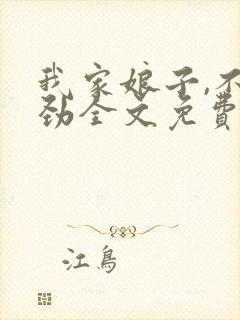 我家娘子,不
劲全文免費
江鳥